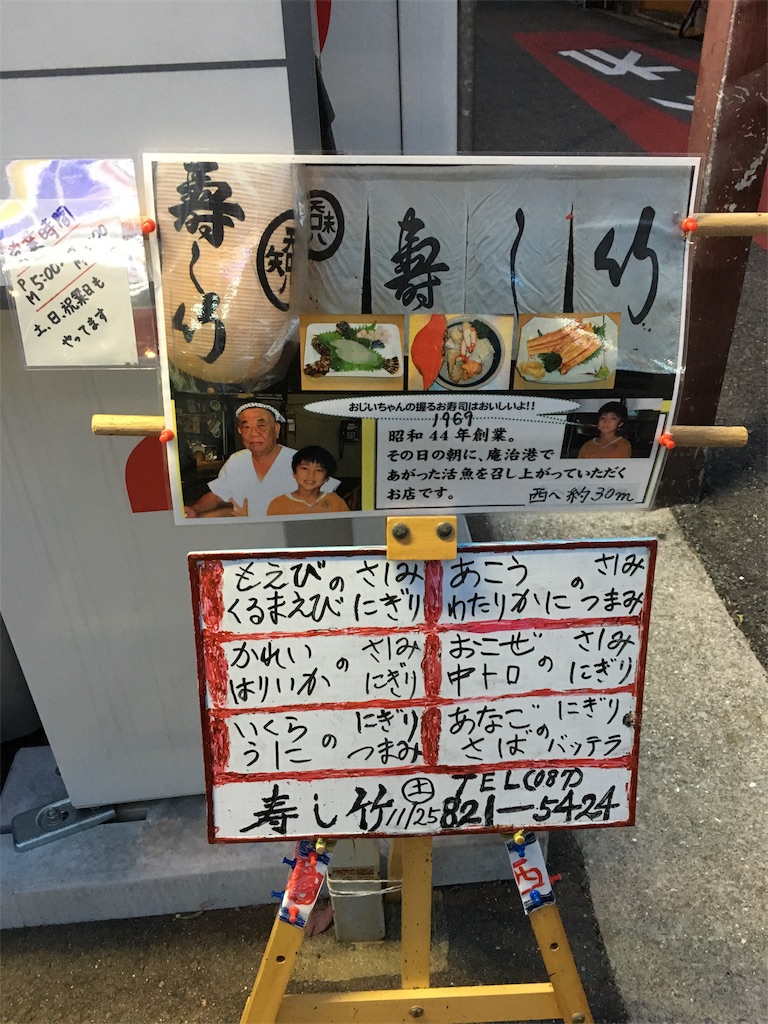 営業時間
PM5:00-
土、日、祝祭日も
やってます
寿し竹
寿し竹
おじいちゃんの握るお寿司はおいしいよ!!
1969
昭和44年創業。
その日の朝に、庵治港で
あがった活魚を召し上がっていただく
お店です。
西へ約30m
もえびのさしみ
くるまえびにぎり
あこうのさしみ
わたりかにつまみ
かれいのさしみ
はりいかにぎり
おこぜのさしみ
中トロにぎり
いくらのにぎり
うにつまみ
あなごのにぎり
さばバッテラ
寿し竹 11/25 土 TEL(087)
821-5424
西